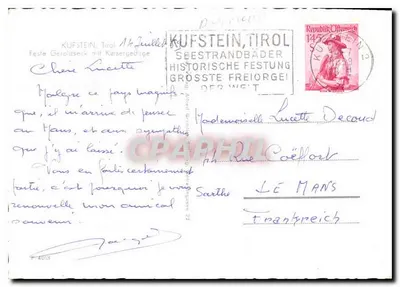 KUFSTEIN, Tirol
Feste Geroldseck mit Kaisergebirge
14 Juillet
Chere Lucette
Malgre ce pays magnifi-
que, il m'arrive de penser
au Mans, et aux sympathies
que j'y ai laissé.
Vous en faites certainement
partie, c'est pourquoi je vous
renouvelle mon amical
souvenir.
KUFSTEIN, TIROL
SEESTRANDBÄDER
HISTORISCHE FESTUNG
GRÖSSTE FREIORGEL
DER WELT
KUFSTEIN 2
Republik Österreich
1.45
Mademoiselle Lucette
Rue Coëffort
LE MANS
Sarthe
Frankreich
CPARAMA